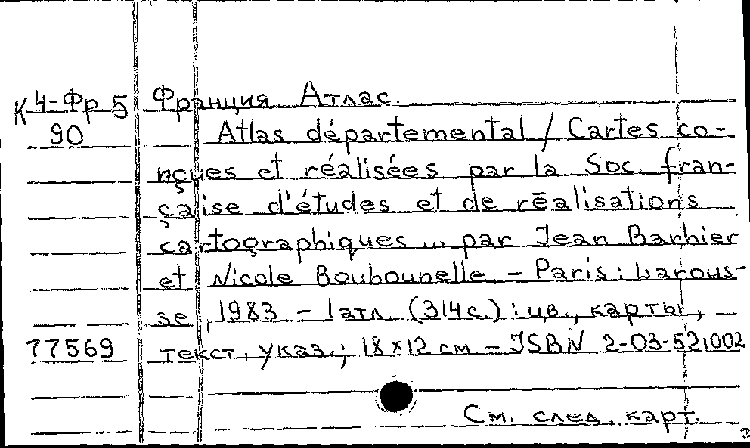 К 4-Фр 5 Франция. Атлас.
90 Atlas départemental / Cartes co-
nçues et réalisées par la Soc. fran-
çaise d'études et de réalisations
cartographiques ... par Jean Barbier
et Nicole Boubounelle – Paris : Larous-
se, 1983 – 1 атл. (314 с.) : цв., карты,
77569 текст, указ.; 18×12 см – ISBN 2-03-521002
См. след. карт.